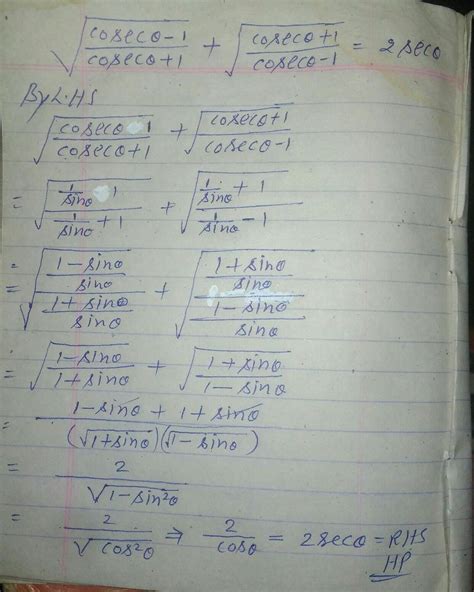 √((cosecθ-1)/(cosecθ+1)) + √((cosecθ+1)/(cosecθ-1)) = 2secθ
By L.HS
√((cosecθ 1)/(cosecθ+1)) + √((cosecθ+1)/(cosecθ-1))
= √((1/sinθ 1)/(1/sinθ + 1)) + √((1/sinθ + 1)/(1/sinθ - 1))
= √(((1-sinθ)/sinθ)/((1+sinθ)/sinθ)) + √(((1+sinθ)/sinθ)/((1-sinθ)/sinθ))
= √((1-sinθ)/(1+sinθ)) + √((1+sinθ)/(1-sinθ))
= (1-sinθ + 1+sinθ)/((√1+sinθ)(√1-sinθ))
= 2/√(1-sin²θ)
= 2/√(cos²θ) ⇒ 2/cosθ = 2secθ = RHS
HP